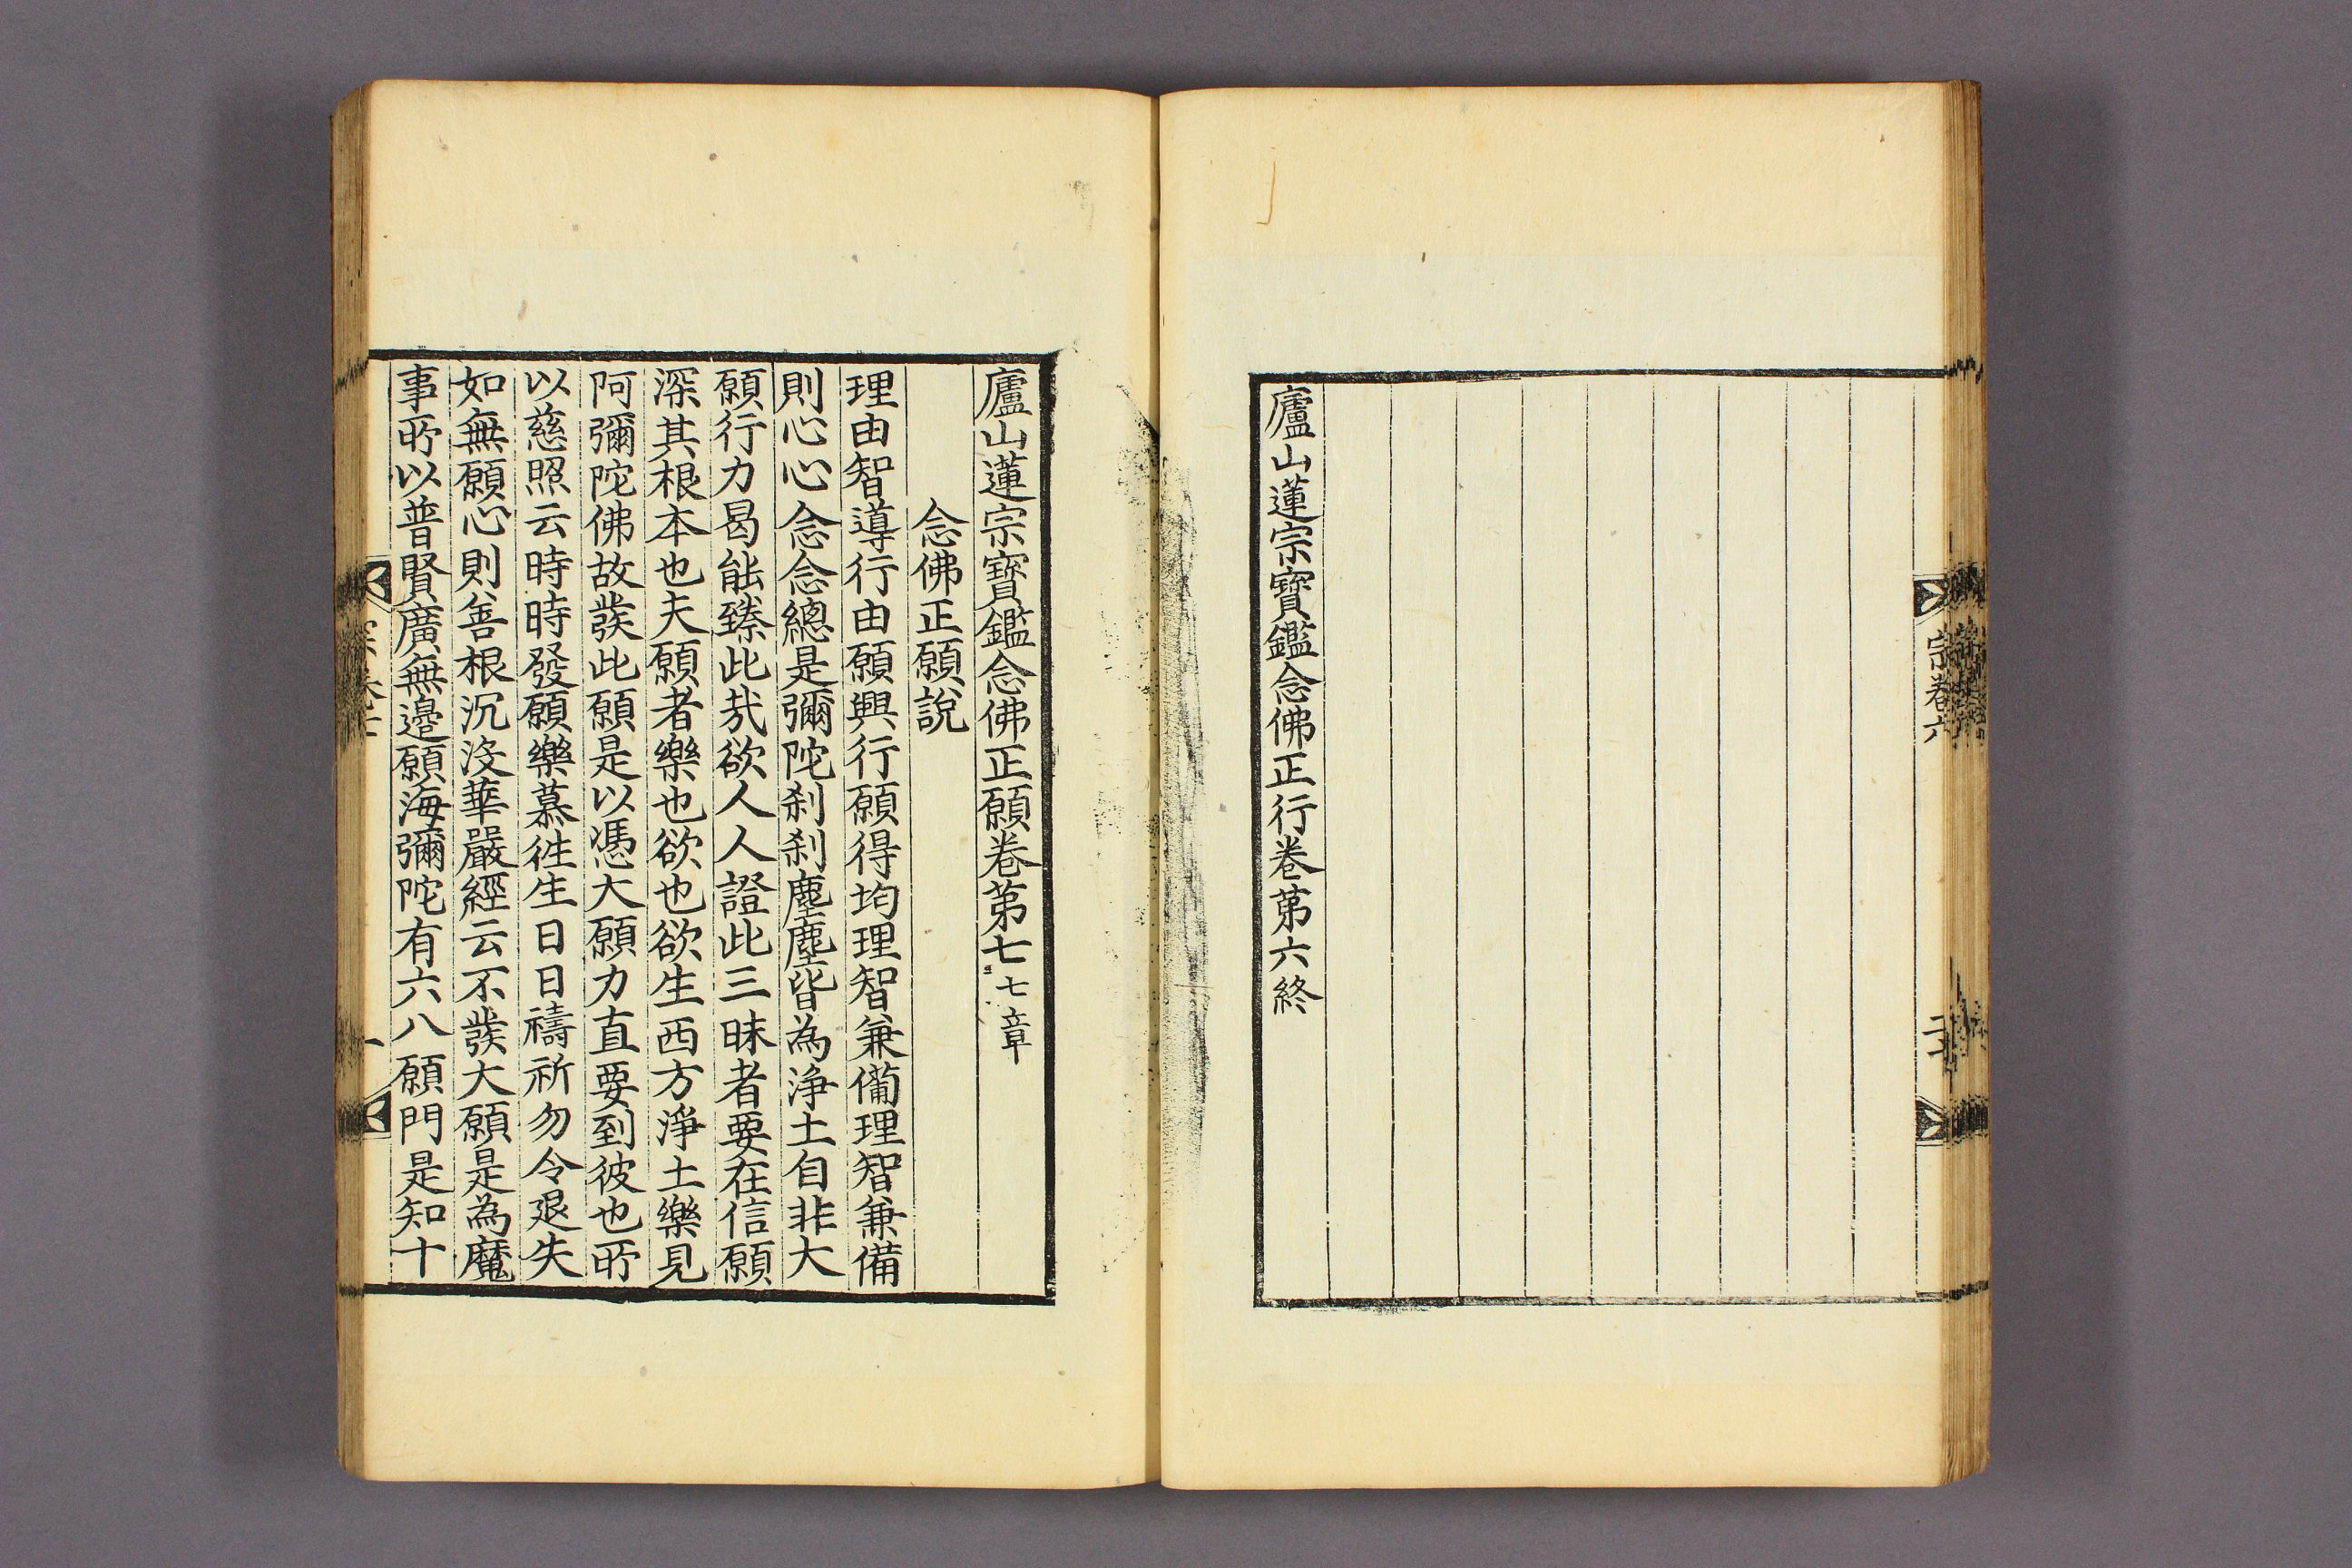 宗卷六
廬山蓮宗寶鑑念佛正行卷第六終
廬山蓮宗寶鑑念佛正願卷第七 七章
念佛正願說
理由智導行由願興行願得均理智兼備理智兼備
則心心念念總是彌陀刹刹塵塵皆為淨土自非大
願行力曷能臻此㢤欲人人證此三昧者要在信願
深其根本也夫願者樂也欲也欲生西方淨土樂見
阿彌陀佛故發此願是以憑大願力直要到彼也所
以慈照云時時發願樂慕徃生日日禱祈勿令退失
如無願心則善根沉没華嚴經云不發大願是為魔
事所以普賢廣無邉願海彌陀有六八願門是知十